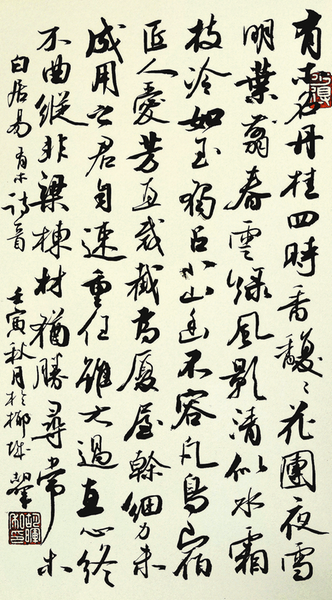 有木名丹桂四時香馥々花團夜雪
明葉翦春雲緑風影清似水霜
枝冷如玉獨占小山幽不容凡鳥宿
匠人愛芳直裁截為廈屋幹細力未
成用之君自速重任雖大過直心終
不曲縱非梁棟材猶勝尋常木
白居易有木詩一首
壬寅秋月於椰城